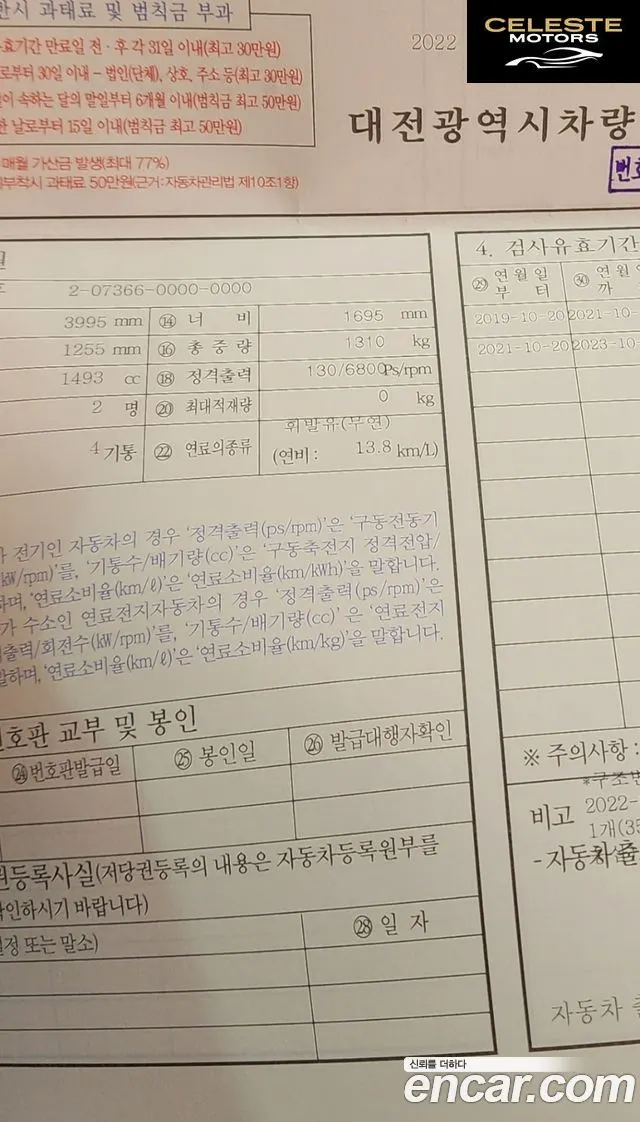 반시 과태료 및 범칙금 부과
효기간 만료일 전·후 각 31일 이내(최고 30만원)
로부터 30일 이내 - 법인(단체), 상호, 주소 등(최고 30만원)
일이 속하는 달의 말일부터 6개월 이내(범칙금 최고 50만원)
한 날로부터 15일 이내(범칙금 최고 50만원)
매월 가산금 발생(최대 77%)
부착시 과태료 50만원(근거:자동차관리법 제10조1항)
CELESTE
MOTORS
2022
대전광역시차량
번호
원
호 2-07366-0000-0000
3995 mm ⑭ 너 비 1695 mm
1255 mm ⑯ 총 중 량 1310 kg
1493 cc ⑱ 정격출력 130/6800Ps/rpm
2 명 ⑳ 최대적재량 0 kg
4기통 ㉒ 연료의종류 휘발유(무연)
(연비: 13.8 km/L)
4. 검사유효기간
㉙ 연월일 부 터 ㉚ 연월 까
2019-10-20 2021-10-
2021-10-20 2023-10-
가 전기인 자동차의 경우 '정격출력(ps/rpm)'은 '구동전동기
kW/rpm)'를, '기통수/배기량(cc)'은 '구동축전지 정격전압/
하며, '연료소비율(km/ℓ)'은 '연료소비율(km/kWh)'을 말합니다.
가 수소인 연료전지자동차의 경우 '정격출력(ps/rpm)'은
출력/회전수(kW/rpm)'를, '기통수/배기량(cc)' 은 '연료전지
말하며, '연료소비율(km/ℓ)'은 '연료소비율(km/kg)'을 말합니다.
번호판 교부 및 봉인
㉔번호판발급일 ㉕ 봉인일 ㉖ 발급대행자확인
권등록사실(저당권등록의 내용은 자동차등록원부를
확인하시기 바랍니다)
설정 또는 말소) ㉘ 일 자
※ 주의사항 :
*구조변
비고 2022-
1개(35
-자동차출
자동차 출
신뢰를 더하다
encar.com